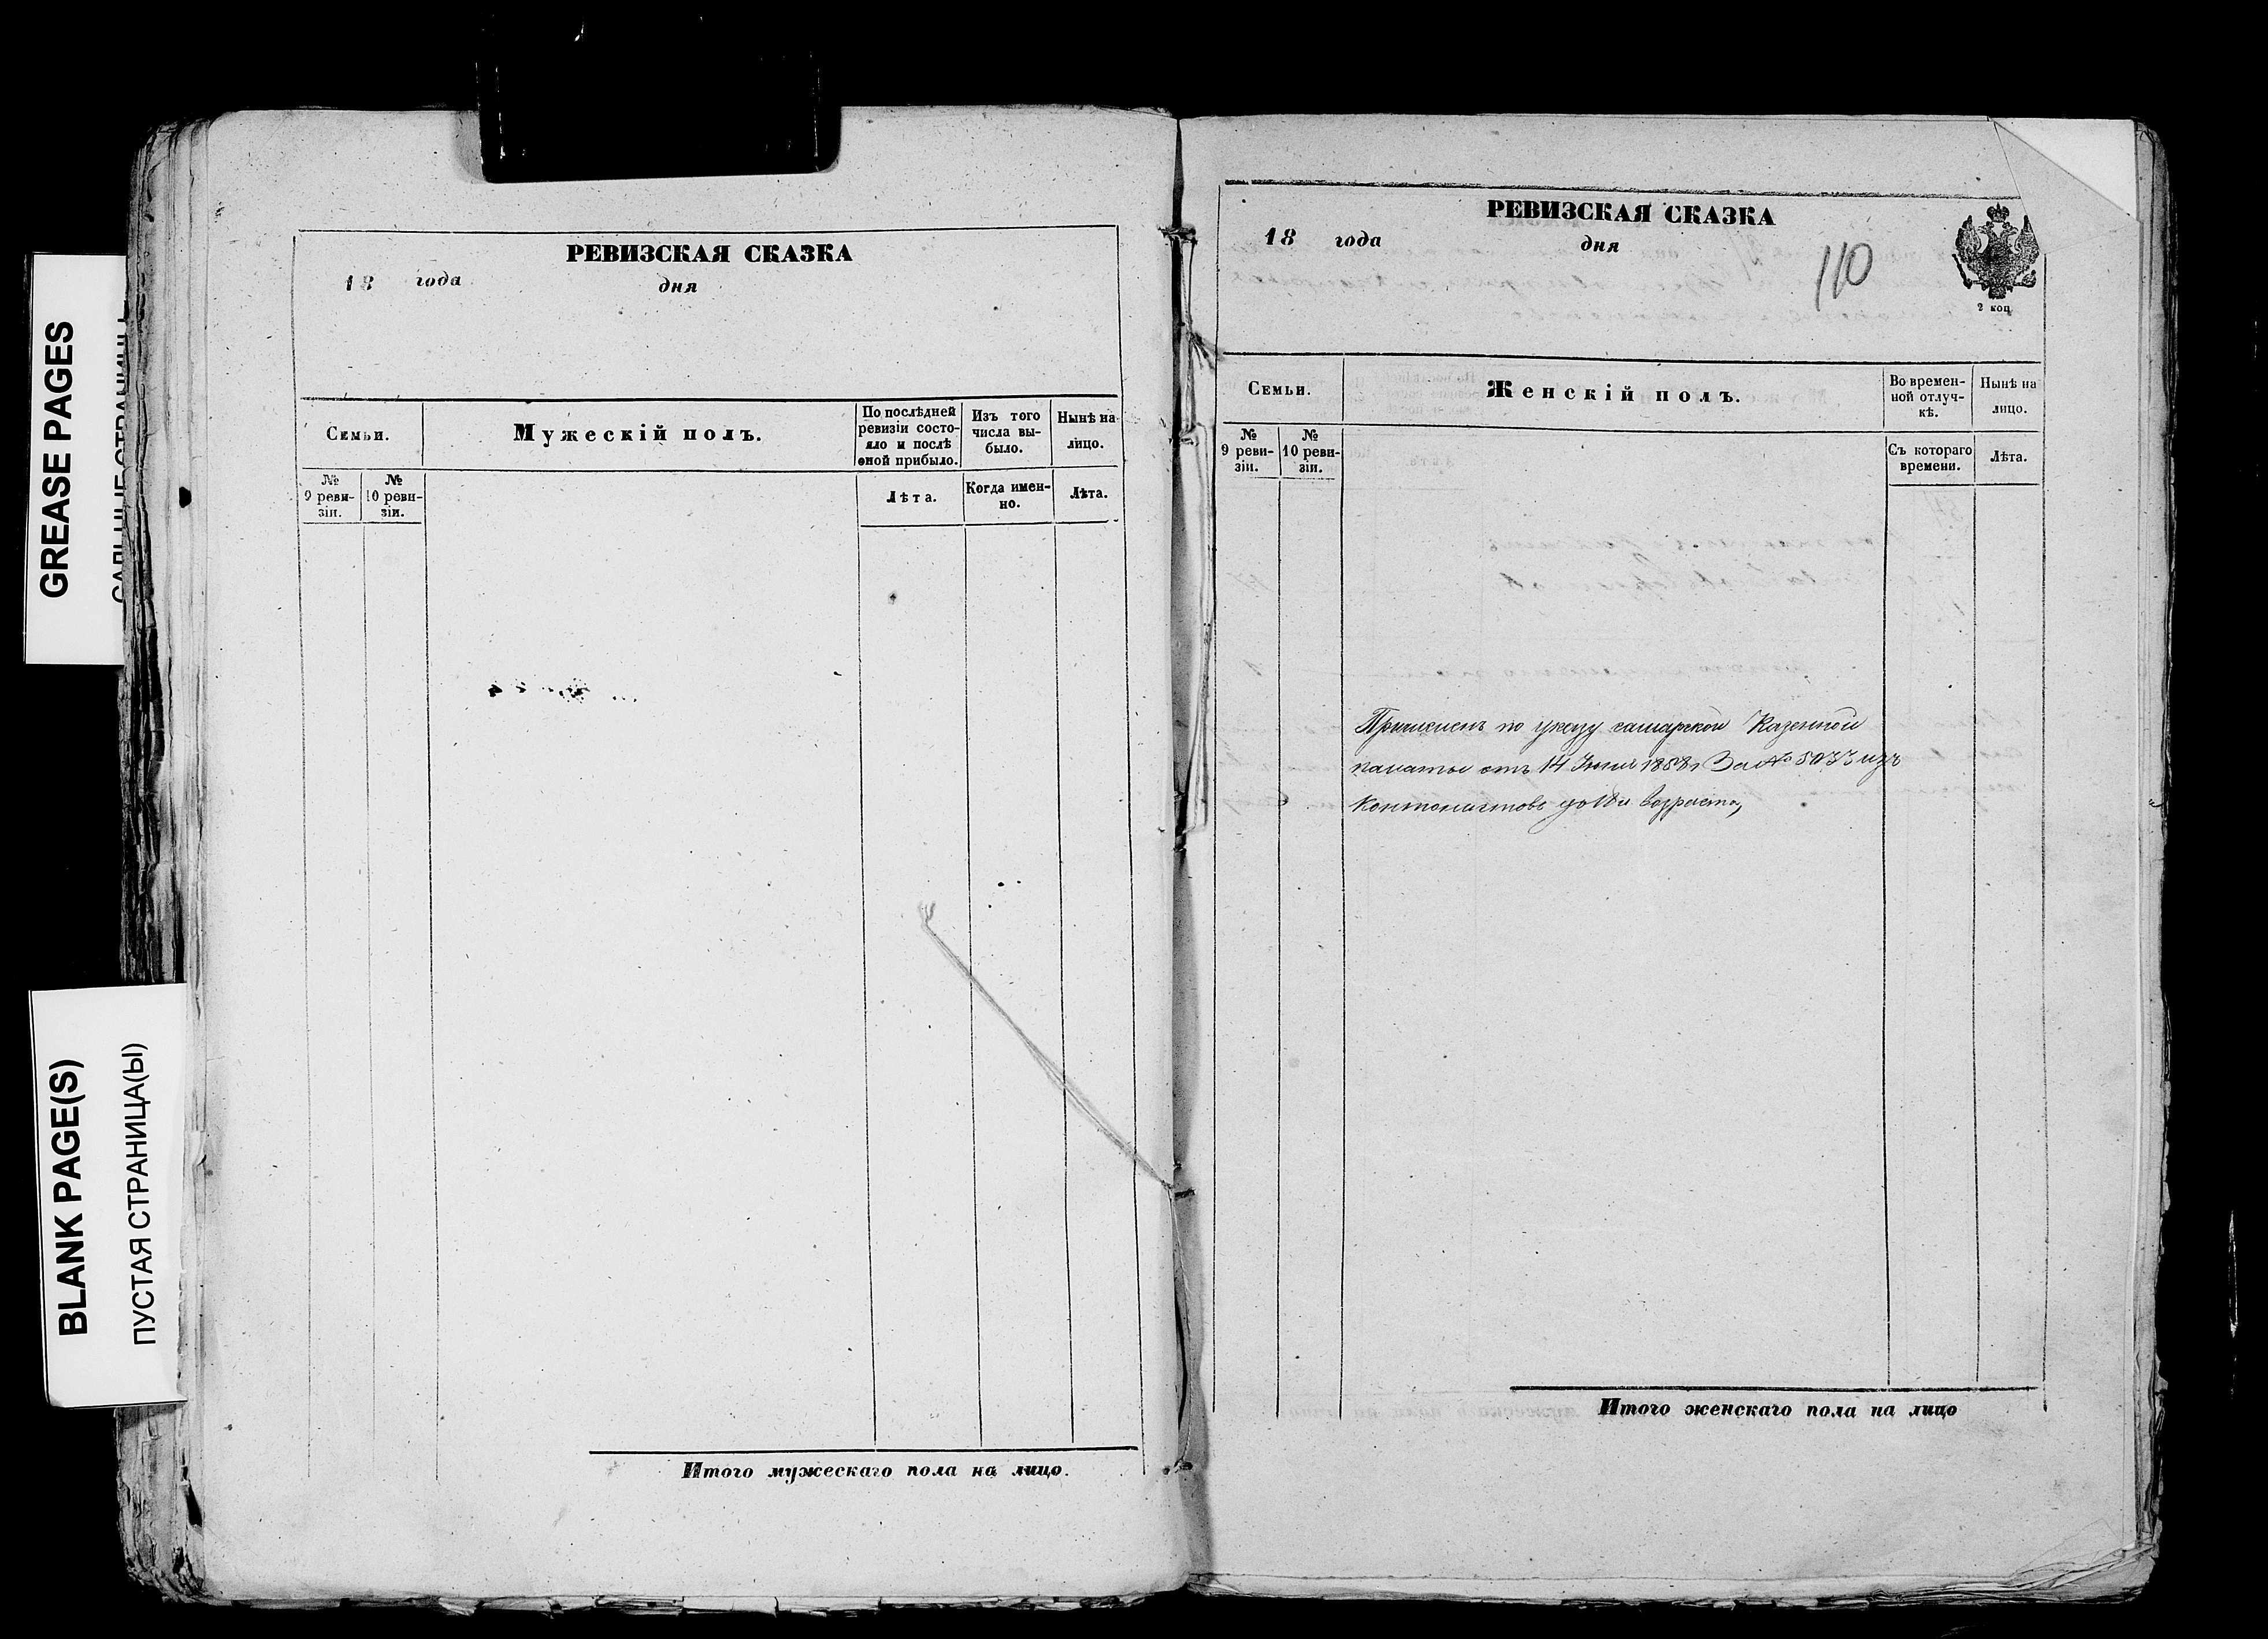 GREASE PAGES
BLANK PAGE(S)
ПУСТАЯ СТРАНИЦА(Ы)
РЕВИЗСКАЯ СКАЗКА
18 года дня
Семьи.
Мужескій полъ.
По послѣдней
ревизіи состо-
яло и послѣ
оной прибыло.
Изъ того
числа вы-
было.
Нынѣ на
лицо.
№
9 реви-
зіи.
№
10 реви-
зіи.
Лѣта.
Когда имен-
но.
Лѣта.
Итого мужескаго пола на лицо.
РЕВИЗСКАЯ СКАЗКА
18 года дня
110
2 коп
Семьи.
Женскій полъ.
Во времен-
ной отлуч-
кѣ.
Нынѣ на
лицо.
№
9 реви-
зіи.
№
10 реви-
зіи.
Съ котораго
времени.
Лѣта.
Причисленъ по указу самарской Казенной
палаты отъ 14 1858 За № изъ
Контонистовъ возраста,
Итого женскаго пола на лицо